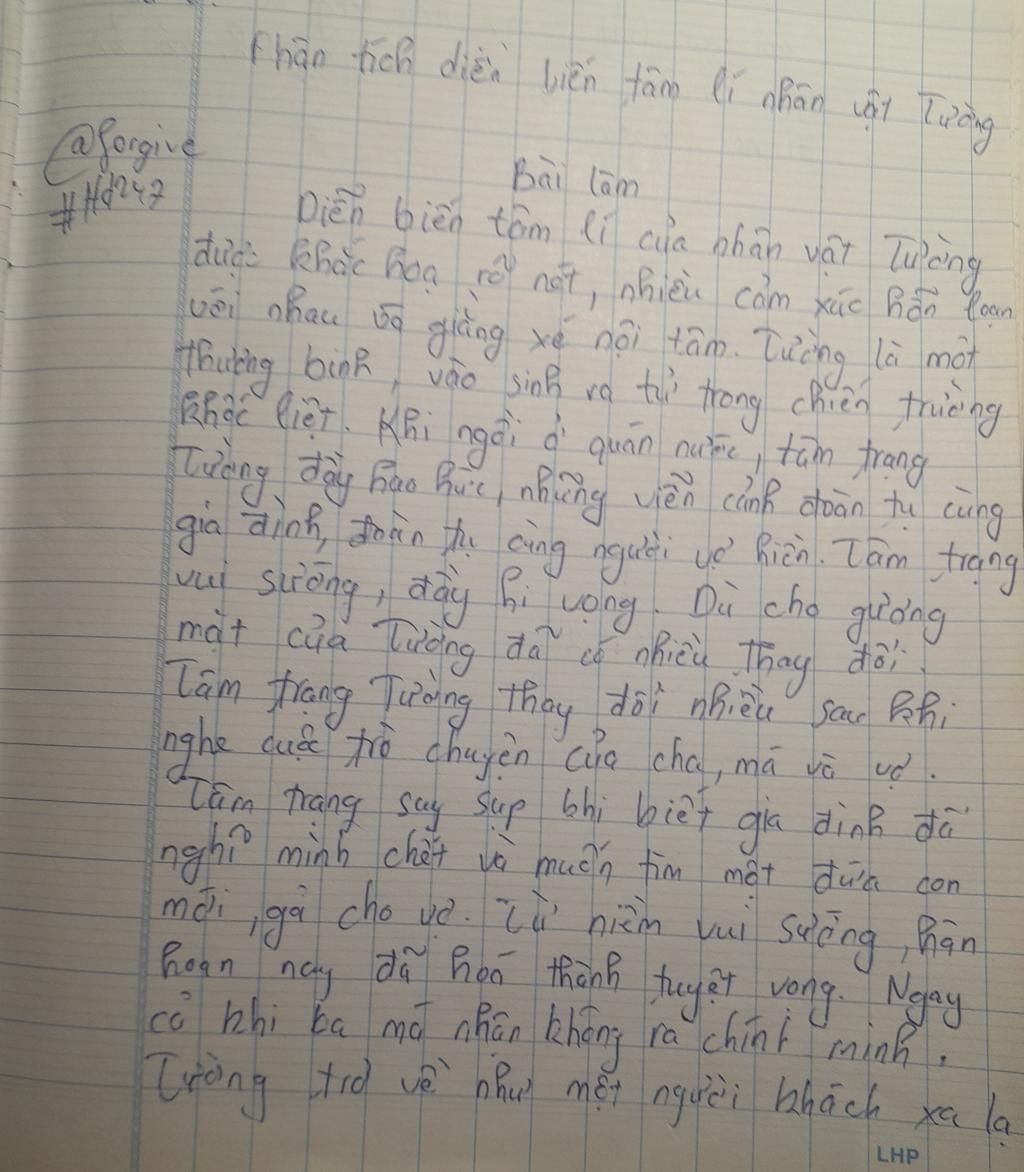 Phân tích diễn biến tâm lí nhân vật Tường
@forgive
#Hd247
Bài làm
Diễn biến tâm lí của nhân vật Tường
được khắc hoạ rõ nét, nhiều cảm xúc hỗn loạn
với nhau và giằng xé nội tâm. Tường là một
thương binh, vào sinh ra tử trong chiến trường
khốc liệt. Khi ngồi ở quán nước, tâm trạng
Tường đầy háo hức, những viễn cảnh đoàn tụ cùng
gia đình, đoàn tụ cùng người vợ hiền. Tâm trạng
vui sướng, đầy hi vọng. Dù cho gương
mặt của Tường đã có nhiều thay đổi.
Tâm trạng Tường thay đổi nhiều sau khi
nghe cuộc trò chuyện của cha, má và vợ.
Tâm trạng suy sụp khi biết gia đình đã
nghĩ mình chết và muốn tìm một đứa con
mới, gả cho vợ. Từ niềm vui sướng, hân
hoan nay đã hoá thành tuyệt vọng. Ngay
cả khi ba má nhận không ra chính mình.
Tường trở về như một người khách xa lạ
LHP